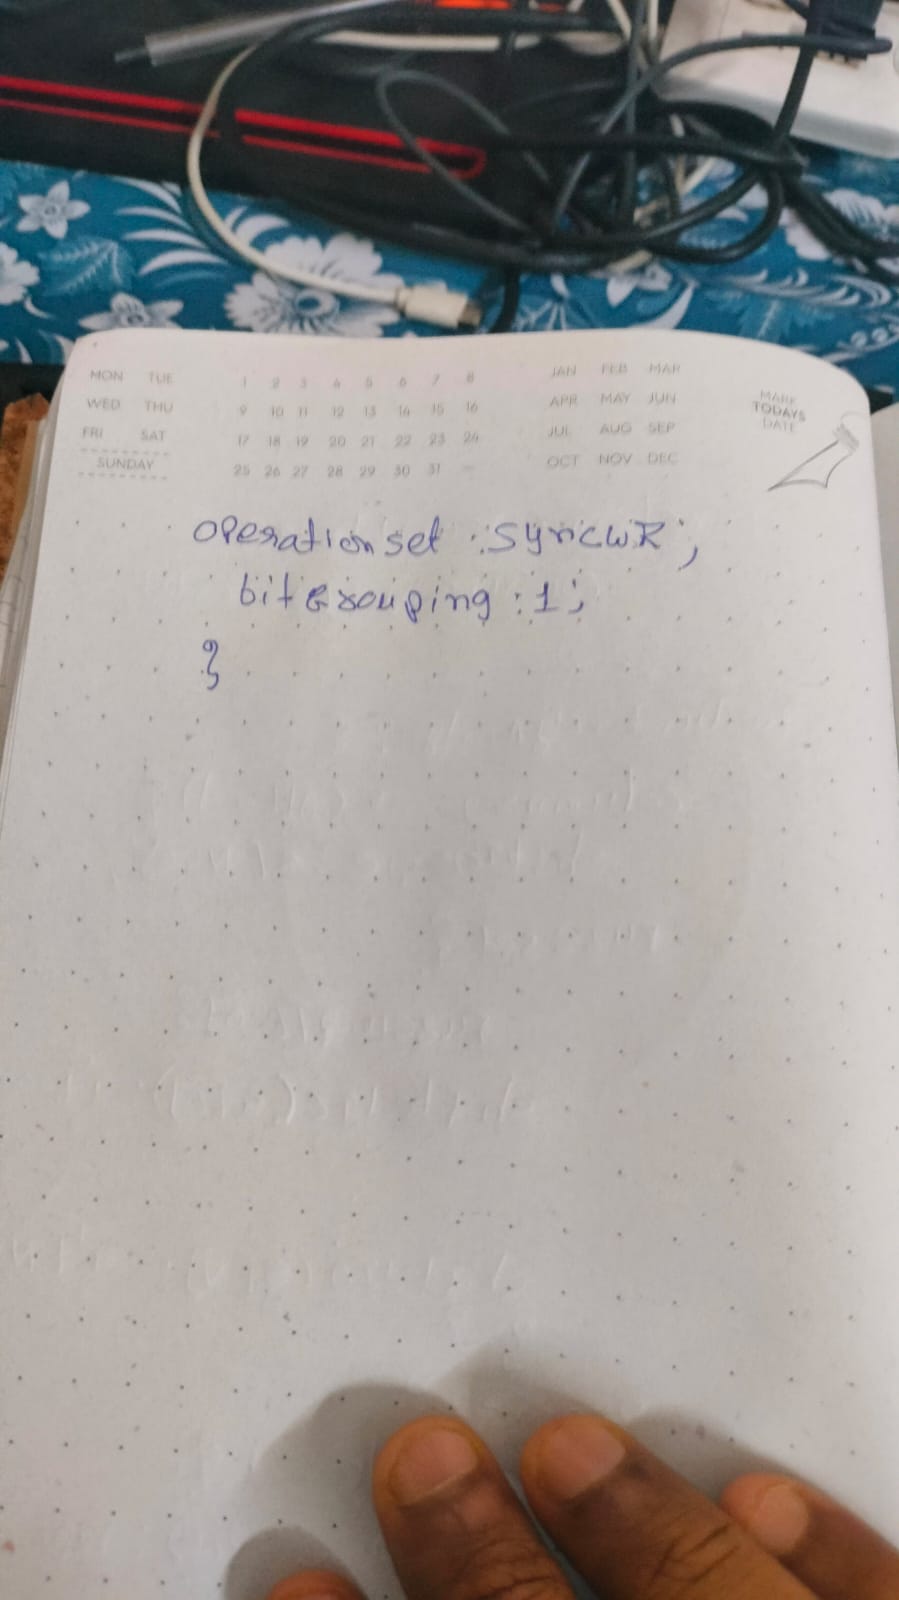 MON TUE
WED THU
FRI SAT
SUNDAY
1 2 3 4 5 6 7 8
9 10 11 12 13 14 15 16
17 18 19 20 21 22 23 24
25 26 27 28 29 30 31
JAN FEB MAR
APR MAY JUN
JUL AUG SEP
OCT NOV DEC
MARK
TODAYS
DATE
operationset : SyncWR ;
bitGrouping : 1 ;
}